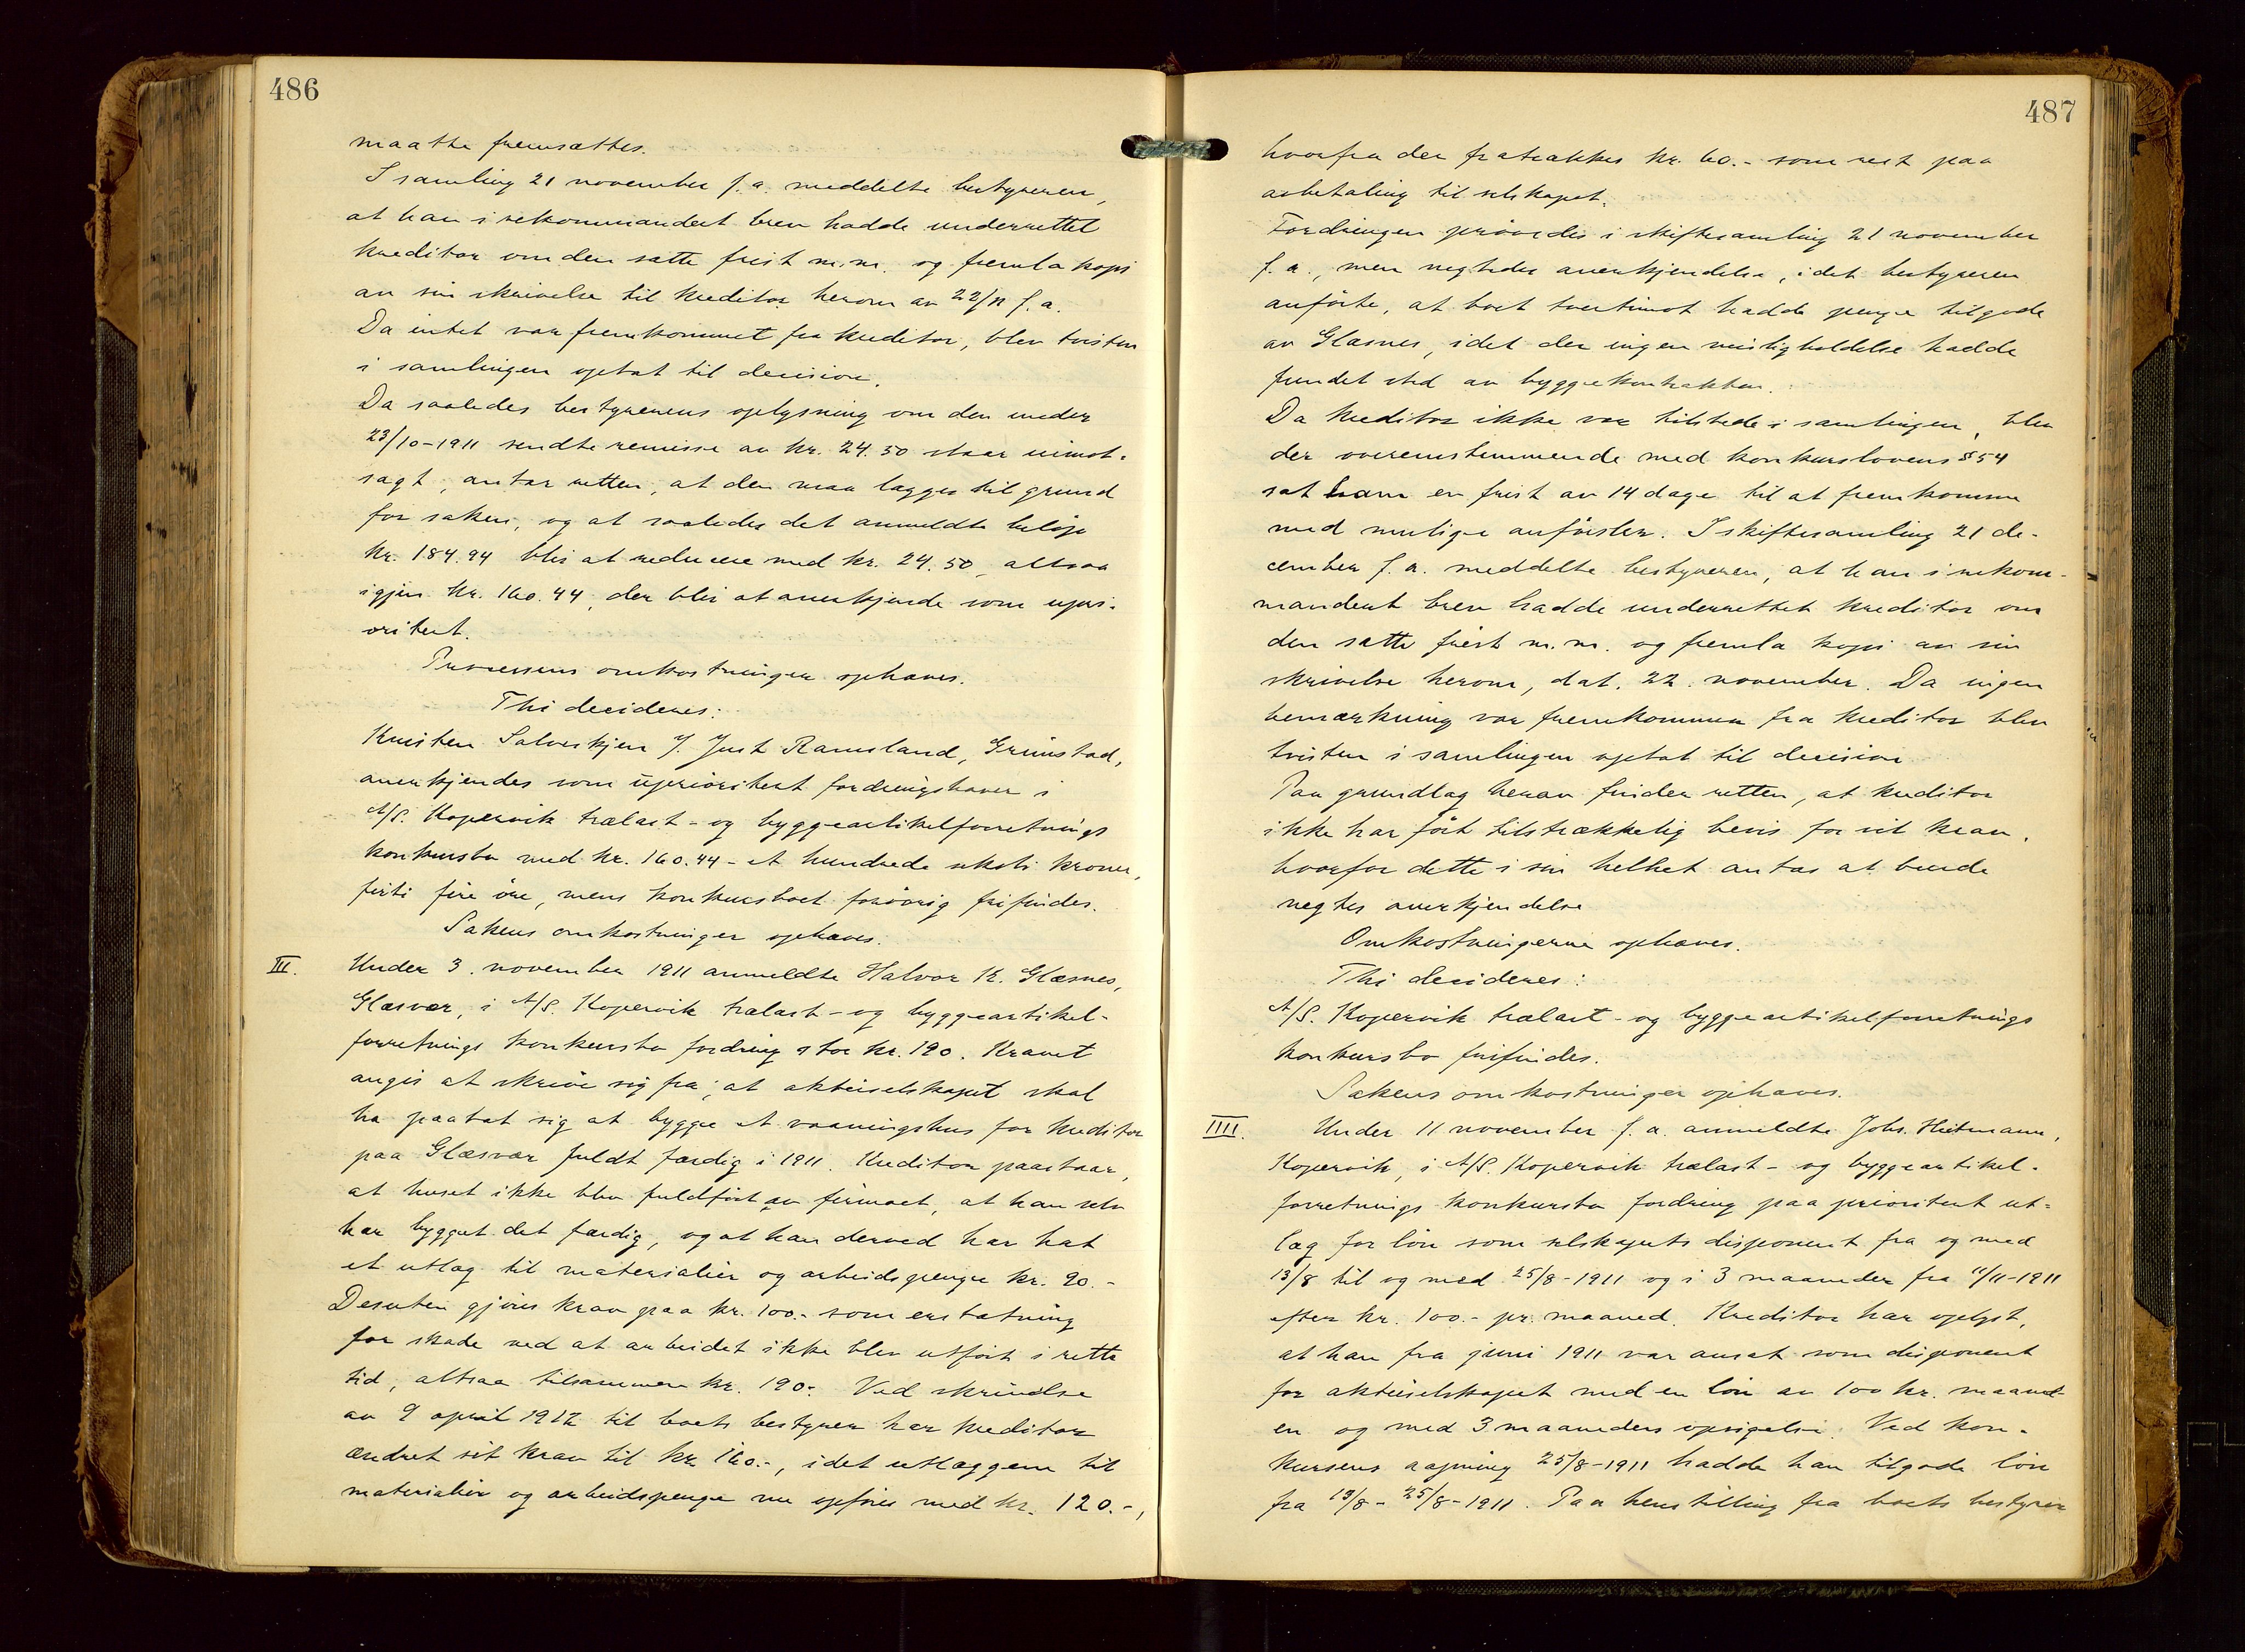 486
maatte fremsættes.
I samling 21 november f.a. meddelte bestyreren,
at han i rekommandert brev hadde underrettet
kreditor om den satte frist m.m. og fremla kopi
av sin skrivelse til kreditor herom av 22/11 f.a.
Da intet var fremkommet fra kreditor, blev tvisten
i samlingen optat til decision.
Da saaledes bestyrerens oplysning om den under
23/10-1911 sendte remisse av kr. 24.50 staar uimot-
sagt, antar retten, at den maa lægges til grund
for saken, og at saaledes det anmeldte beløp
kr. 184.94 blir at reducere med kr. 24.50, altsaa
igjen kr. 160.44, der blir at anerkjende som upri-
oritert.
Processens omkostninger ophæves.
Thi decideres:
Kristen Salveskjen v/ Just Ramsland, Grimstad,
anerkjendes som uprioritert fordringshaver i
A/S. Kopervik trælast- og byggeartikelforretnings
konkursbo med kr. 160.44 - et hundrede seksti kroner,
firti fire øre, mens konkursboet forøvrig frifindes.
Sakens omkostninger ophæves.
III. Under 3. november 1911 anmeldte Halvor K. Glæsnes,
Glæsvær, i A/S. Kopervik trælast- og byggeartikel-
forretnings konkursbo fordring stor kr. 190. Kravet
angis at skrive sig fra, at aktieselskapet skal
ha paatat sig at bygge et vaaningshus for kreditor
paa Glæsvær fuldt færdig i 1911. Kreditor paastaar,
at huset ikke blev fuldført av firmaet, at han selv
har bygget det færdig, og at han derved har hat
et utlæg til materialier og arbeidspenge kr. 90.-
Desuten gjøres krav paa kr. 100.- som erstatning
for skade ved at arbeidet ikke blev utført i rette
tid, altsaa tilsammen kr. 190.- Ved skrivelse
av 9 april 1912 til boets bestyrer har kreditor
ændret sit krav til kr. 160.-, idet utlæggene til
materialier og arbeidspenge nu opføres med kr. 120.-,
487
hvorfra der fratrækkes kr. 60.- som rest paa
avbetaling til selskapet.
Fordringen prøvedes i skiftesamling 21 november
f.a., men negtedes anerkjendelse, idet bestyreren
anførte, at boet tvertimot hadde penge tilgode
av Glæsnes, idet der ingen misligholdelse hadde
fundet sted av byggekontrakten.
Da kreditor ikke var tilstede i samlingen, blev
der overensstemmende med konkurslovens § 54
sat ham en frist av 14 dage til at fremkomme
med mulige anførsler. I skiftesamling 21 de-
cember f.a. meddelte bestyreren, at han i rekom-
mandert brev hadde underrettet kreditor om
den satte frist m.m. og fremla kopi av sin
skrivelse herom, dat. 22. november. Da ingen
bemærkning var fremkommen fra kreditor blev
tvisten i samlingen optat til decision
Paa grundlag herav finder retten, at kreditor
ikke har ført tilstrækkelig bevis for sit krav,
hvorfor dette i sin helhet antas at burde
negtes anerkjendelse
Omkostningerne ophæves.
Thi decideres:
A/S. Kopervik trælast- og byggeartikelforretnings
konkursbo frifindes.
Sakens omkostninger ophæves.
IIII. Under 11 november f.a. anmeldte Johs. Hietmann,
Kopervik, i A/S. Kopervik trælast- og byggeartikel-
forretnings konkursbo fordring paa prioritert ut-
læg for løn som selskapets disponent fra og med
13/8 til og med 25/8-1911 og i 3 maaneder fra 11/11-1911
efter kr. 100.- pr. maaned. Kreditor har oplyst,
at han fra juni 1911 var ansat som disponent
for aktieselskapet med en løn av 100 kr. maaned-
en og med 3 maaneders opsigelse. Ved kon-
kursens aapning 25/8-1911 hadde han tilgode løn
fra 13/8 - 25/8-1911. Paa henstilling fra boets bestyrer